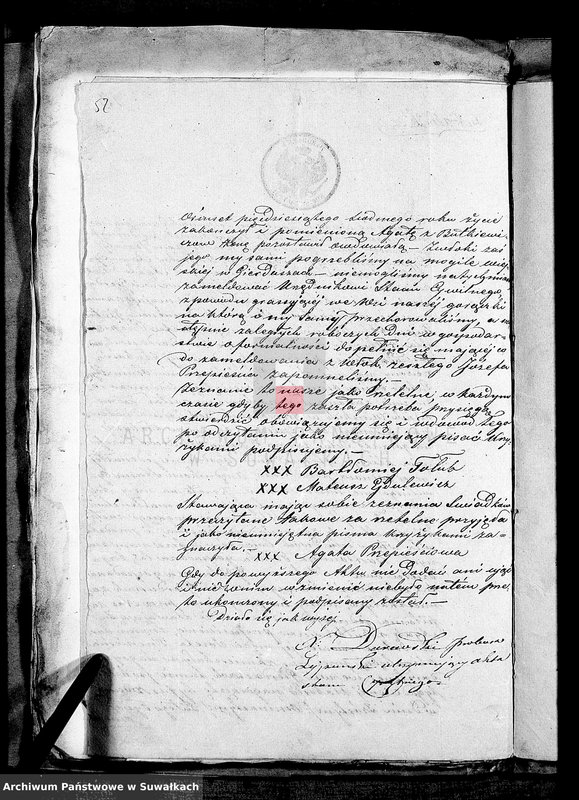 52
Ośmset pięćdziesiątego siódmego roku życie
zakończył i pomienioną Agatę z Butkiewi
czów żonę pozostawił owdowiałą — Zwłoki zaś
jego my sami pogrzebliśmy na mogile wiey
skiej w Gierdaszach — niemogliśmy natychmiast
zameldować Urzędnikowi Stanu Cywilnego,
z powodu grassyjącej we Wsi naszej gorączki
na którą i my sami przechorowaliśmy, a na
stępnie zaległych roboczych Dni w gospodar
stwie o formalności dopełnić się mającej co
do zameldowania z Zwłok zeszłego Józefa
Przepieścia zapomnieliśmy. —
Zeznanie to nasze jako rzetelne, w każdym
czasie gdyby tego zaszła potrzeba przysięgą
stwierdzić obowiązujemy się i w dowód tego
po odczytaniu jako nieumiejący pisać krzy
żykami podpisujemy. —
XXX Bartłomiej Tołub
XXX Mateusz Gdulewicz
Stawająca mając sobie zeznania świadków
przeczytane takowe za rzetelne przyjęła
i jako nieumiejętna pisma krzyżykami za-
fnaczyła. —
XXX Agata Przepieściowa
Gdy do powyższego Aktu nic dodać ani ująć
i niczem odmienić niebyło zatem prze
to ukończony i podpisany został. —
Działo się jak wyżej.
X. Dunowski
utrzymujący akta
stanu
Archiwum Państwowe w Suwałkach